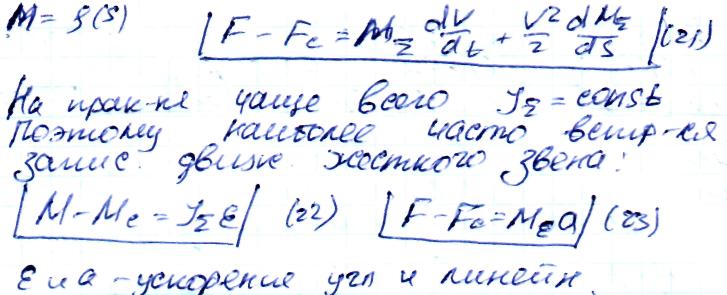 M = f(S)  | F - F_c = M_Σ dV/dt + V²/2 dM_Σ/dS | (21)
На прак-ке чаще всего J_Σ = const
Поэтому наиболее часто встр-ся
запис. движ. жесткого звена:
| M - M_c = J_Σ ε | (22)  | F - F_c = M_Σ a | (23)
ε и a - ускорение угл и линейн.